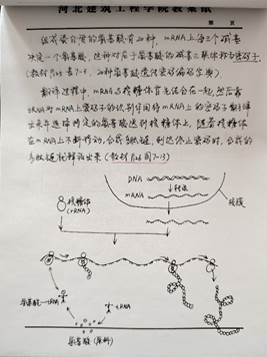 河北建筑工程学院教案纸
第 页
组成蛋白质的氨基酸有20种，mRNA上每3个碱基
决定一个氨基酸，这种对应于氨基酸的碱基三联体称为密码子。
(教材P 表7-2，20种氨基酸遗传密码编码字典)
翻译过程中，mRNA与核糖体首先结合在一起，然后
tRNA与mRNA上密码子的识别作用将mRNA上的密码子翻译
出来并选择特定的氨基酸送到核糖体上，随着核糖体
在mRNA上不断移动，合成多肽链，到达终止密码时，合成的
多肽链就释放出来(教材 图7-13)
DNA
转录
mRNA
核糖体
(rRNA)
核膜
氨基酸—tRNA
tRNA
氨基酸(原料)